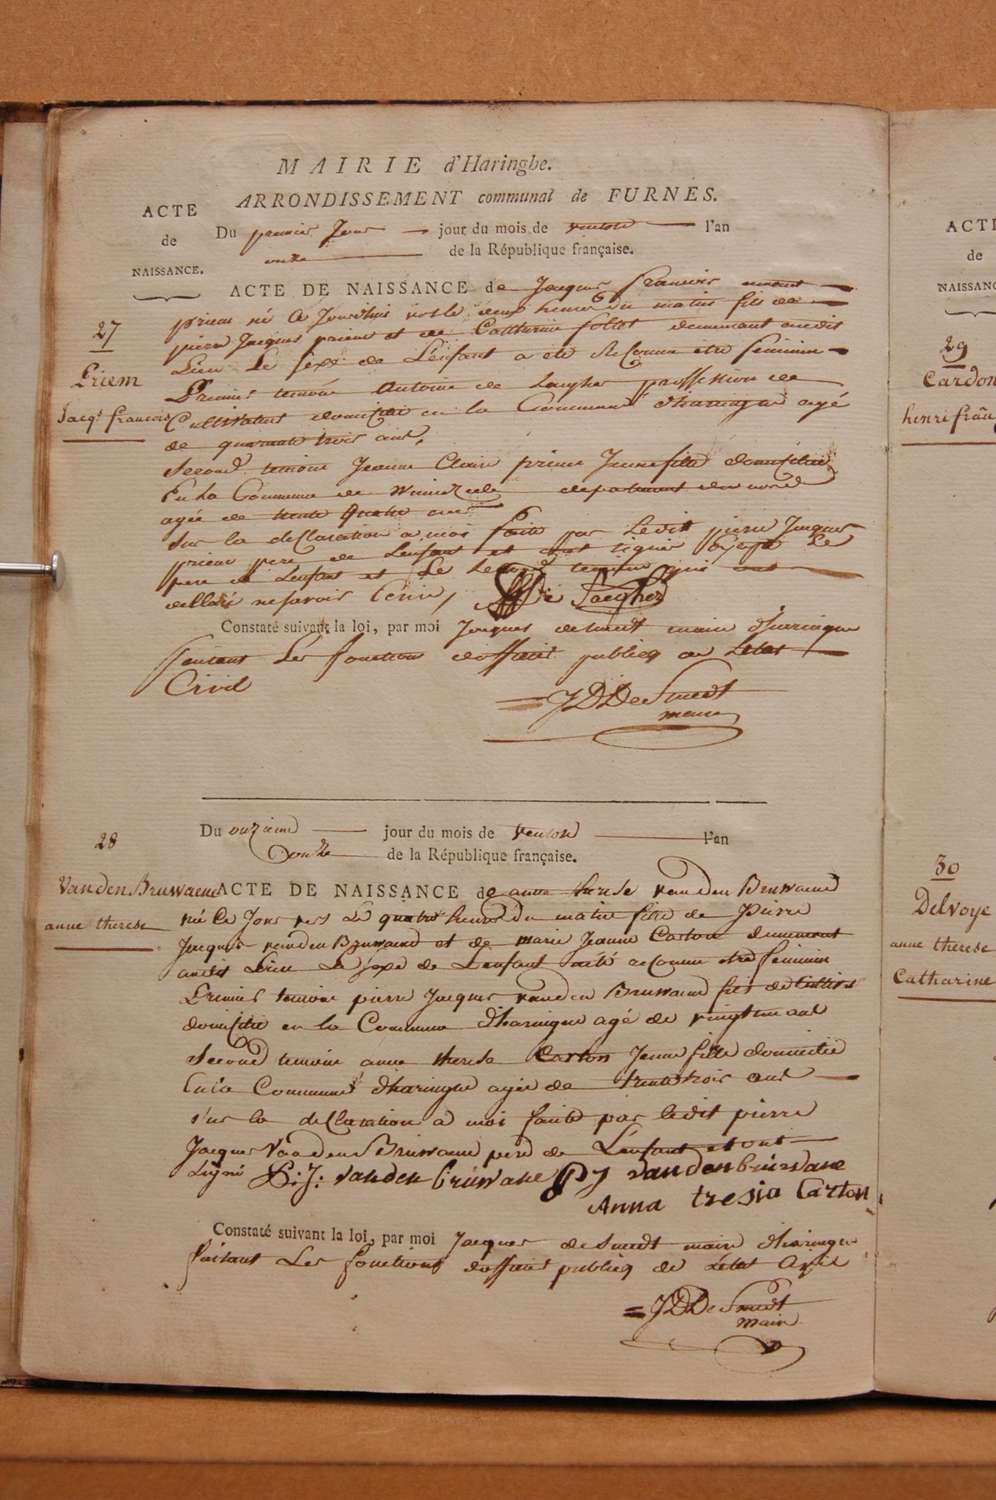 MAIRIE d'Haringhe.
ARRONDISSEMENT communal de FURNES.
ACTE
de
NAISSANCE.
Du premier Jour jour du mois de ventose l'an
onze de la République française.
27
Priem
Jacqs francois
ACTE DE NAISSANCE de Jacques francois
priem né a Jourdhuis vers le deux heures du matin fils de
pierre Jacques priem et de Catherine folles demeurant audit
Lieu Le sexe de Lenfant a eté Reconnu etre feminin
Premier temoin Antoine de Saegher proffession de
Cultivateur domicilié en la Commune d'haringue agé
de quarante trois ans,
Second temoin Jeanne Claire priem Jeune fille domiciliée
En La Commune de Winnezeele departement du nord
agée de trente quatre ans
Sur la declaration a moi faite par Ledit pierre Jacques
priem pere de Lenfant et ont signer Excepté Le
pere de Lenfant et Le Second temoin qui ont
declaré ne savoir Ecrire, De Saegher
Constaté suivant la loi, par moi Jacques de Smedt maire d'haringue
faisant Les fonctions d'officier publicq de Letat
Civil
JD De Smedt
maire
28
Vanden Bruwaene
anne therese
Du onzieme jour du mois de ventose l'an
onze de la République française.
ACTE DE NAISSANCE de anne therese vanden Bruwaene
né Ce Jour vers Le quatre heures du matin fille de Pierre
Jacques vanden Bruwaene et de marie Jeanne Carton demeurant
audit Lieu Le sexe de Lenfant a eté reconnu etre feminin
Premier temoin pierre Jacques vanden Bruwaene fils de Cultivr
domicilié en la Commune d'haringue agé de vingt un ans
Second temoin anne therese Carton Jeune fille domicilié
En la Commune d'haringue agée de trente trois ans
Sur la declaration a moi faite par ledit pierre
Jacques Vanden Bruwaene pere de Lenfant et ont
signé P:J: vanden brüwane PJ vandenbrüwane
Anna tresia Carton
Constaté suivant la loi, par moi Jacques de Smedt maire d'haringue
faisant Les fonctions d'officier publicq de Letat Civil
JD De Smedt
maire
ACTE
de
NAISSANC
29
Cardon
henri fran
30
Delvoye
anne therese
Catharine